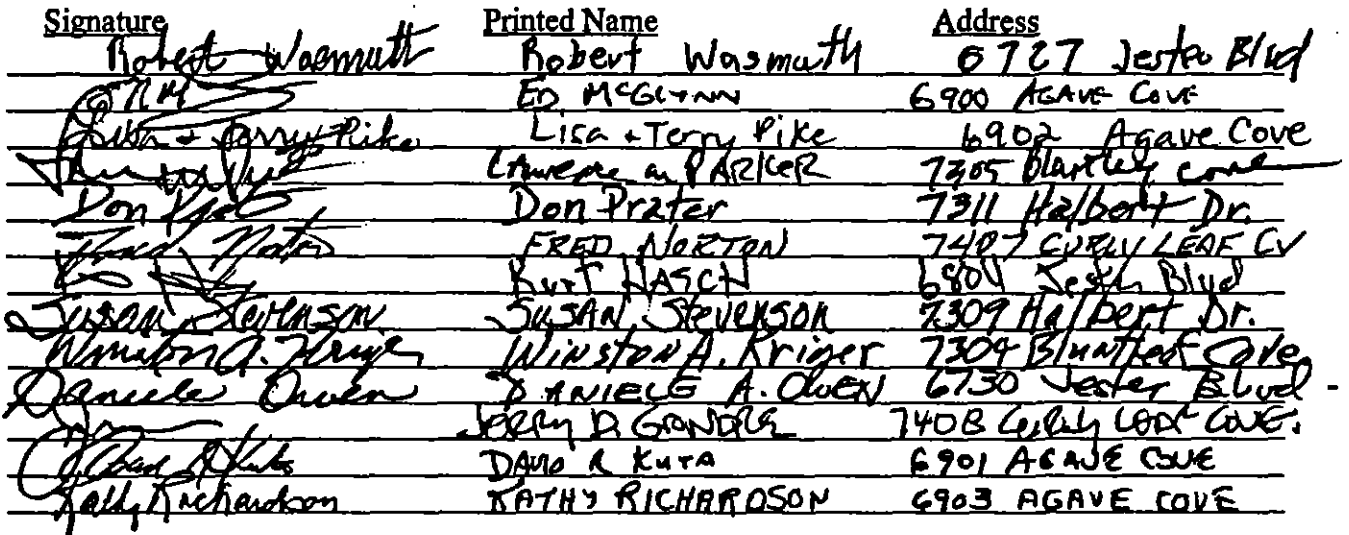 Signature Printed Name Address
Robert Wasmuth Robert Wasmuth 6727 Jester Blvd
ED McGLYNN 6900 AGAVE COVE
Lisa + Terry Pike Lisa + Terry Pike 6902 Agave Cove
PARKER 7305 cove
Don Prater Don Prater 7311 Halbert Dr.
Fred Norton FRED NORTON 7407 CURLY LEAF CV
Kurt 6804 Jester Blvd
Susan Stevenson SUSAN Stevenson 7309 Halbert Dr.
Winston A. Kriger Winston A. Kriger 7304 Bluntleaf Cove
Daniele Owen DANIELE A. OWEN 6730 Jester BLvd -
JERRY D. 7408 Curly LEAF COVE.
David R Kuta DAVID R KUTA 6901 AGAVE COVE
Kathy Richardson KATHY RICHARDSON 6903 AGAVE COVE